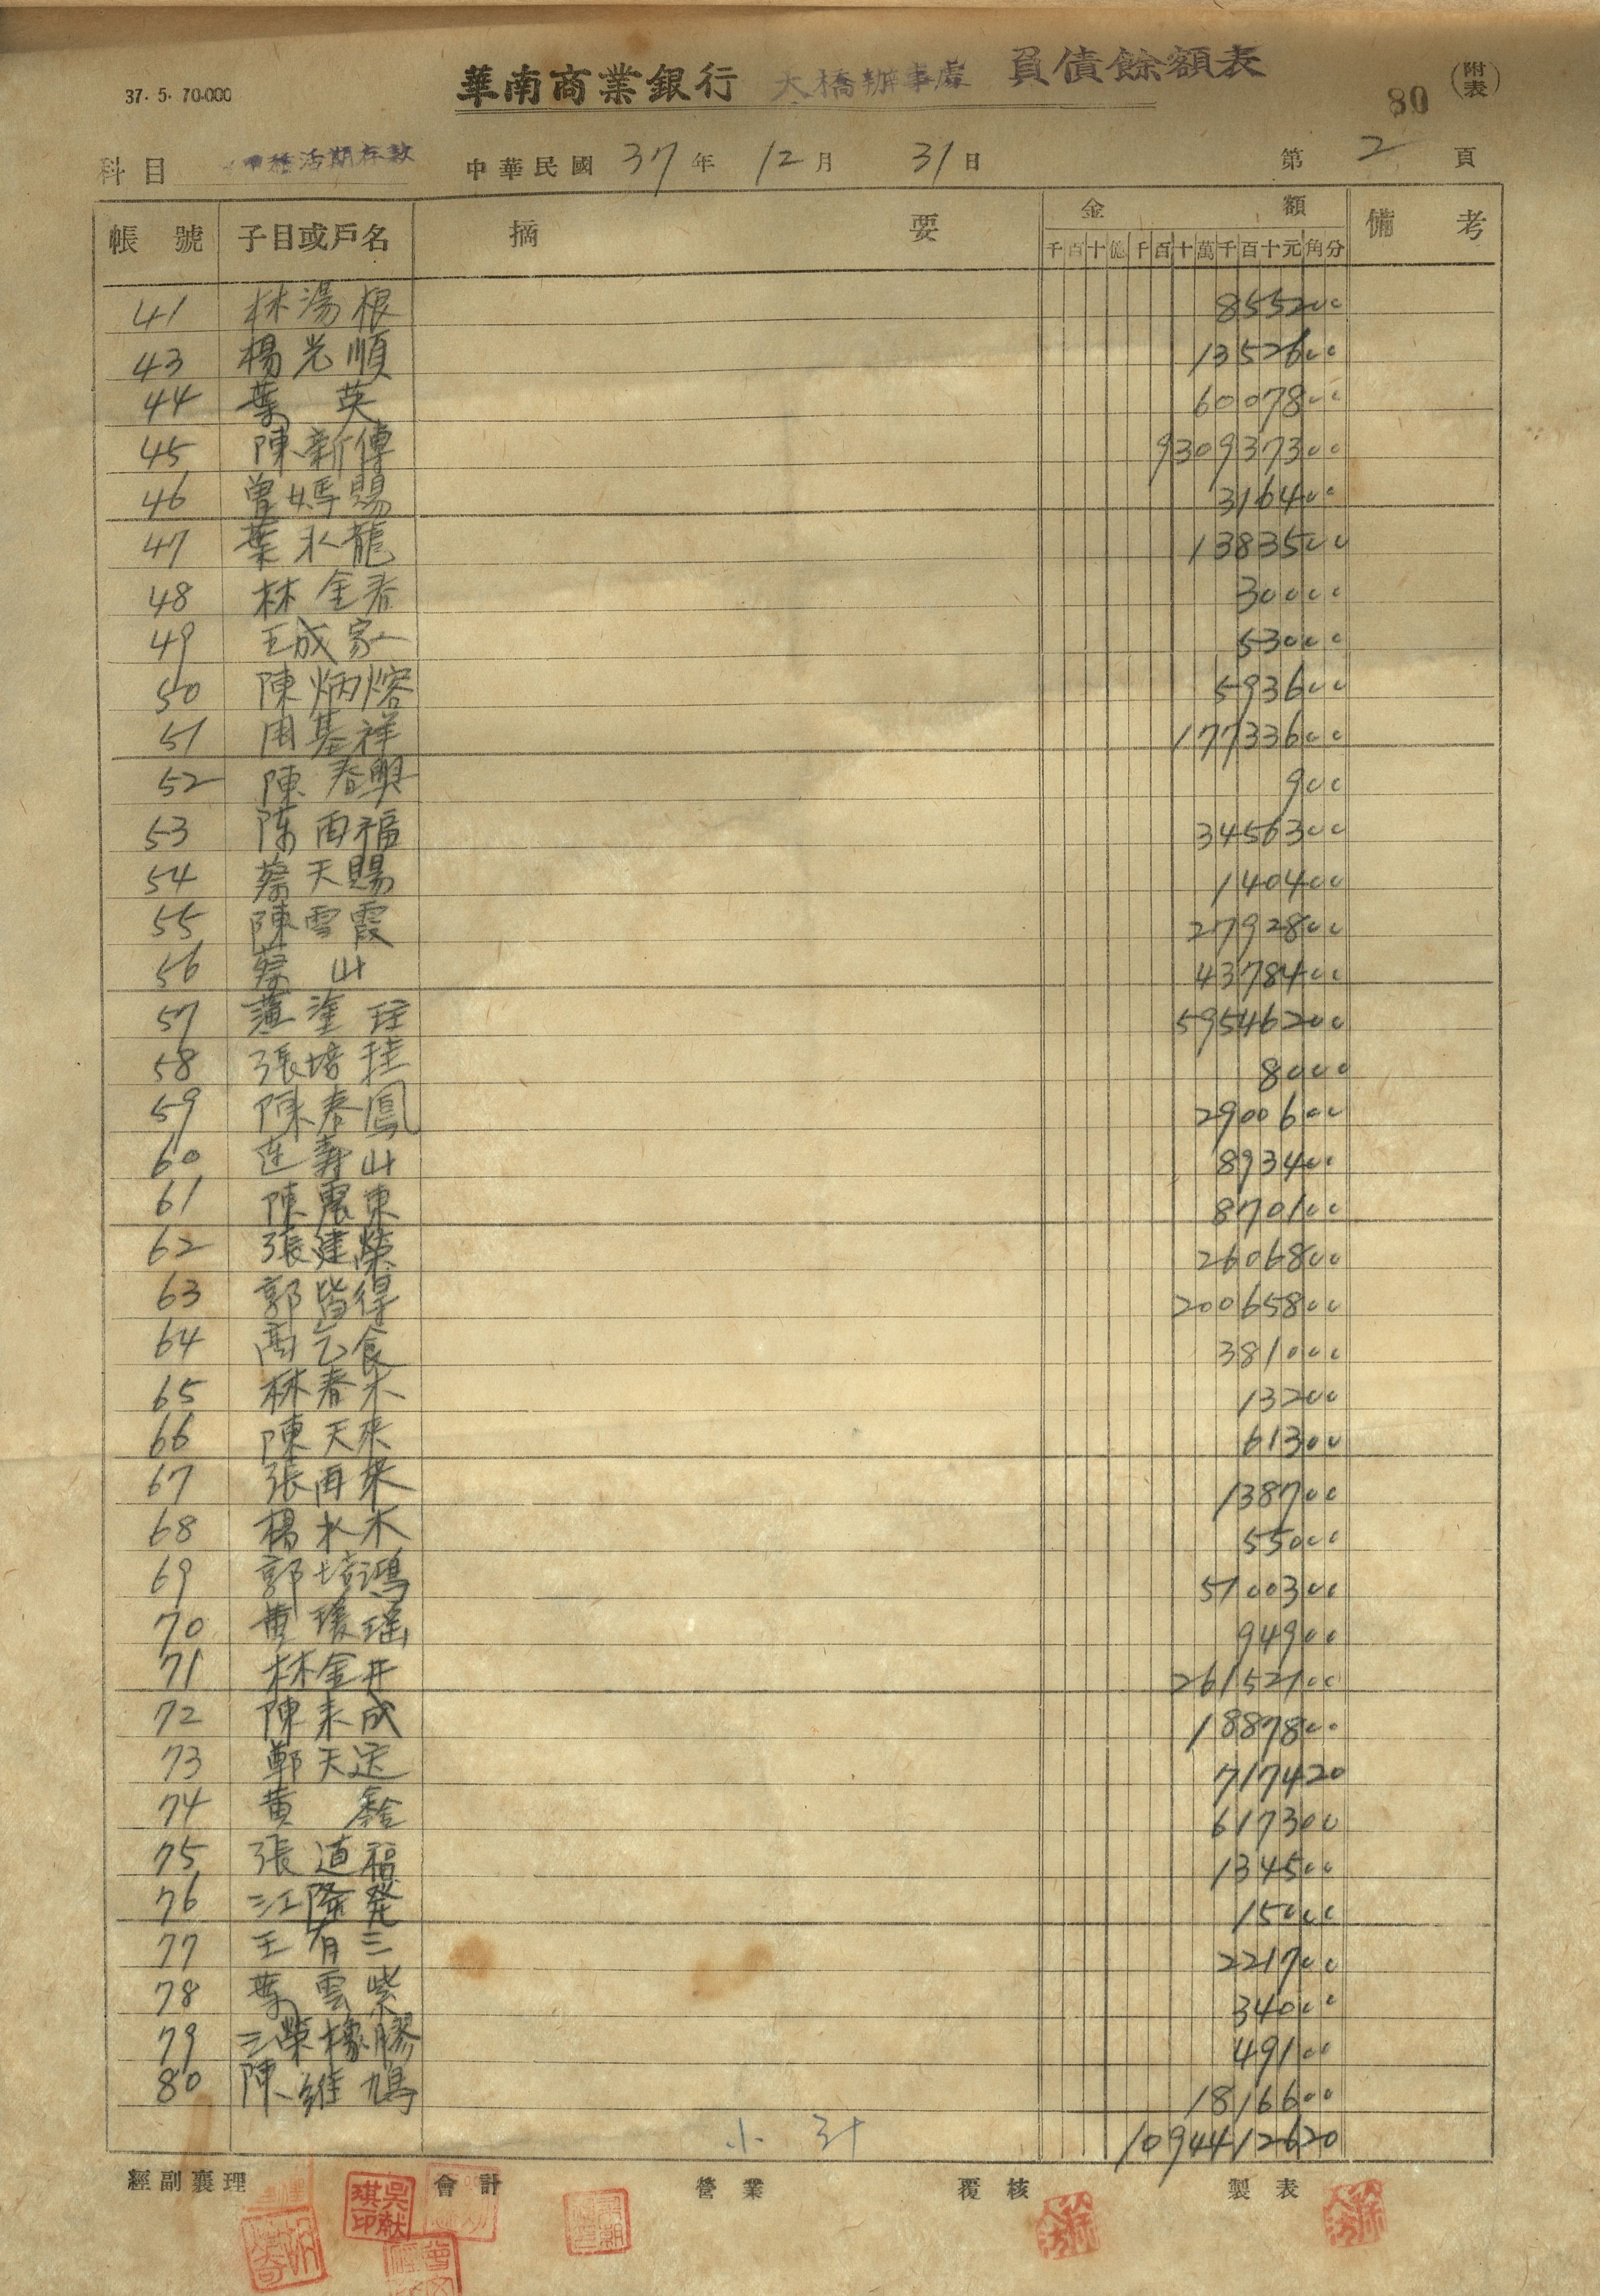 37. 5. 70.000
華南商業銀行 大橋辦事處 負債餘額表 (附表)
80
科目 甲種活期存款 中華民國 37年 12月 31日 第 2 頁
帳號 子目或戶名 摘要 金額 備考
千百十億千百十萬千百十元角分
41 林湯根 855200
43 楊光順 1352600
44 葉英 6007800
45 陳新傳 930937300
46 曾媽賜 316400
47 葉水龍 1383500
48 林金春 30000
49 王成家 53000
50 陳炳熔 593600
51 周基祥 17733600
52 陳春興 900
53 陳再福 3456300
54 蔡天賜 140400
55 陳雲霞 2792800
56 蔡山 4378400
57 塗 59546200
58 張培桂 8000
59 陳春鳳 2900600
60 連壽山 893400
61 陳震東 870100
62 張建榮 2606800
63 郭皆得 20065800
64 高乞食 381000
65 林春木 13200
66 陳天來 61300
67 張再來 138700
68 楊水木 55000
69 郭培鴻 5100300
70 黃瓊瑤 94900
71 林金開 26152100
72 陳来成 1887800
73 鄭天送 717420
74 黃 617300
75 張道福 134500
76 江隆発 15000
77 王有三 221700
78 葉雲紫 34000
79 三榮橡膠 49100
80 陳維鳩 1816600
小計 1094412620
經副襄理 會計 營業 覆核 製表
吳献琪印